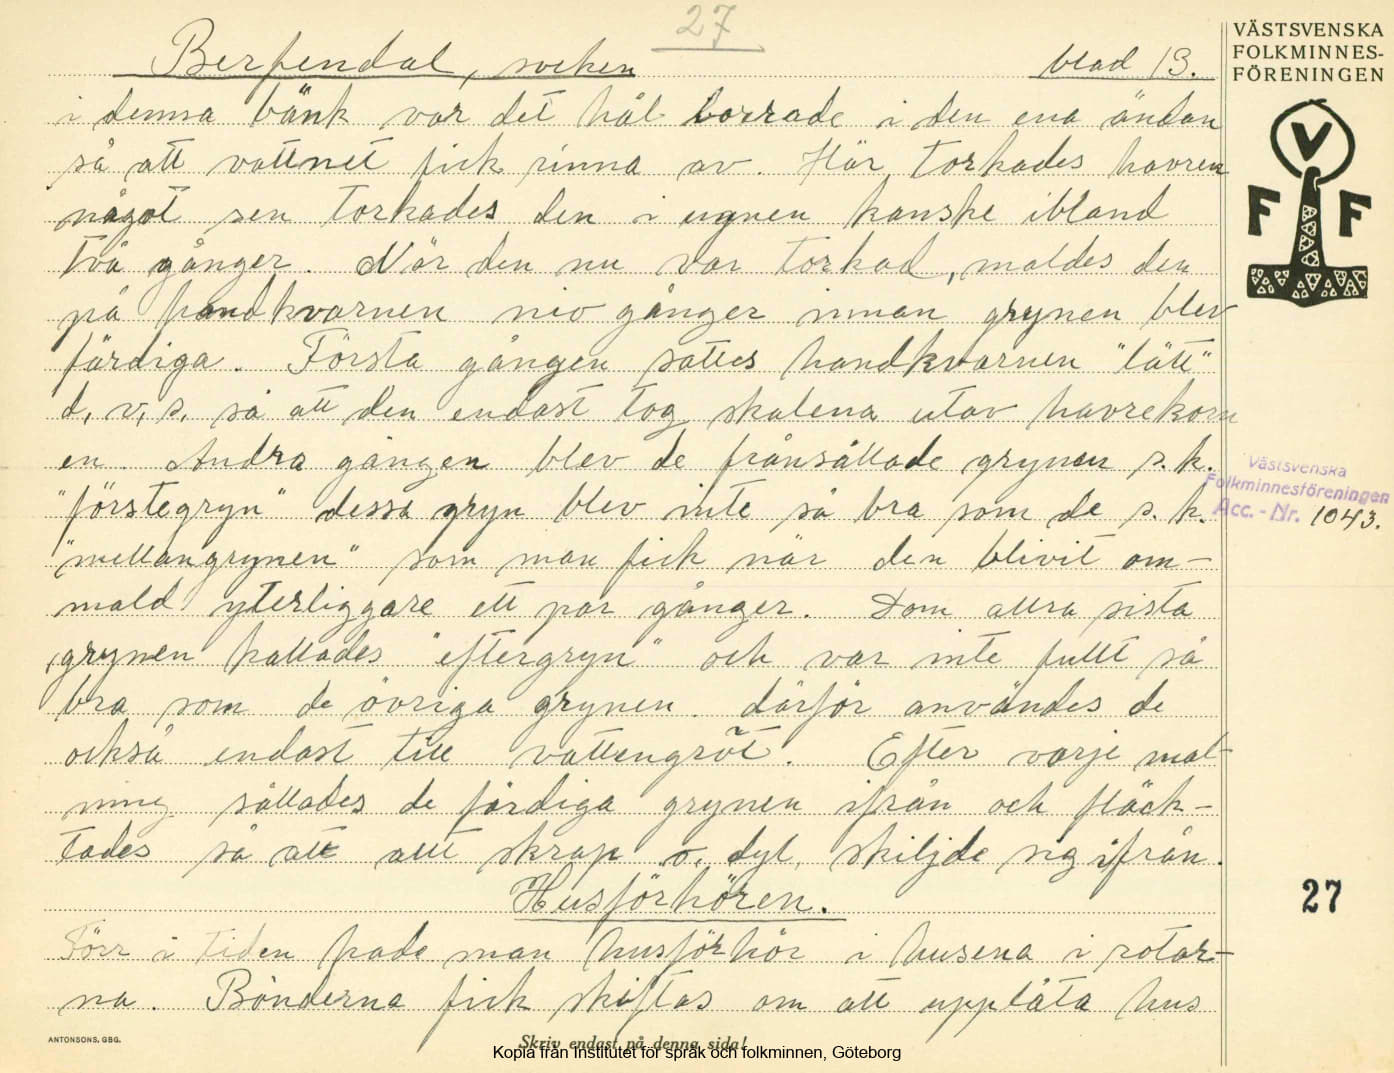 27
Berfendal, socken blad 13.
VÄSTSVENSKA
FOLKMINNES-
FÖRENINGEN
V
F F
i denna bänk var det hål borrade i den ena ändan
så att vattnet fick rinna av. Här torkades havren
något sen torkades den i ugnen kanske ibland
två gånger. När den nu var torkad, maldes den
på handkvarnen nio gånger innan grynen blev
färdiga. Första gången sattes handkvarnen "lätt"
d. v. s. så att den endast tog skalena utav havrekorn
en. Andra gången blev de frånsållade grynen s. k.
"förstegryn" dessa gryn blev inte så bra som de s. k.
"mellangrynen" som man fick när den blivit om-
mald ytterliggare ett par gånger. Dom allra sista
grynen kallades "eftergryn" och var inte fullt så
bra som de övriga grynen. därför användes de
också endast till vattengröt. Efter varje mal-
ning sållades de färdiga grynen ifrån och fläck-
tades så att allt skrap o. dyl. skiljde sig ifrån.
Husförhören.
Förr i tiden hade man husförhör i husena i rotar-
na. Bönderna fick skiftas om att upplåta hus
Västsvenska
Folkminnesföreningen
Acc.-Nr. 1043.
27
ANTONSONS, GBG.
Skriv endast på denna sida!
Kopia från Institutet för språk och folkminnen, Göteborg